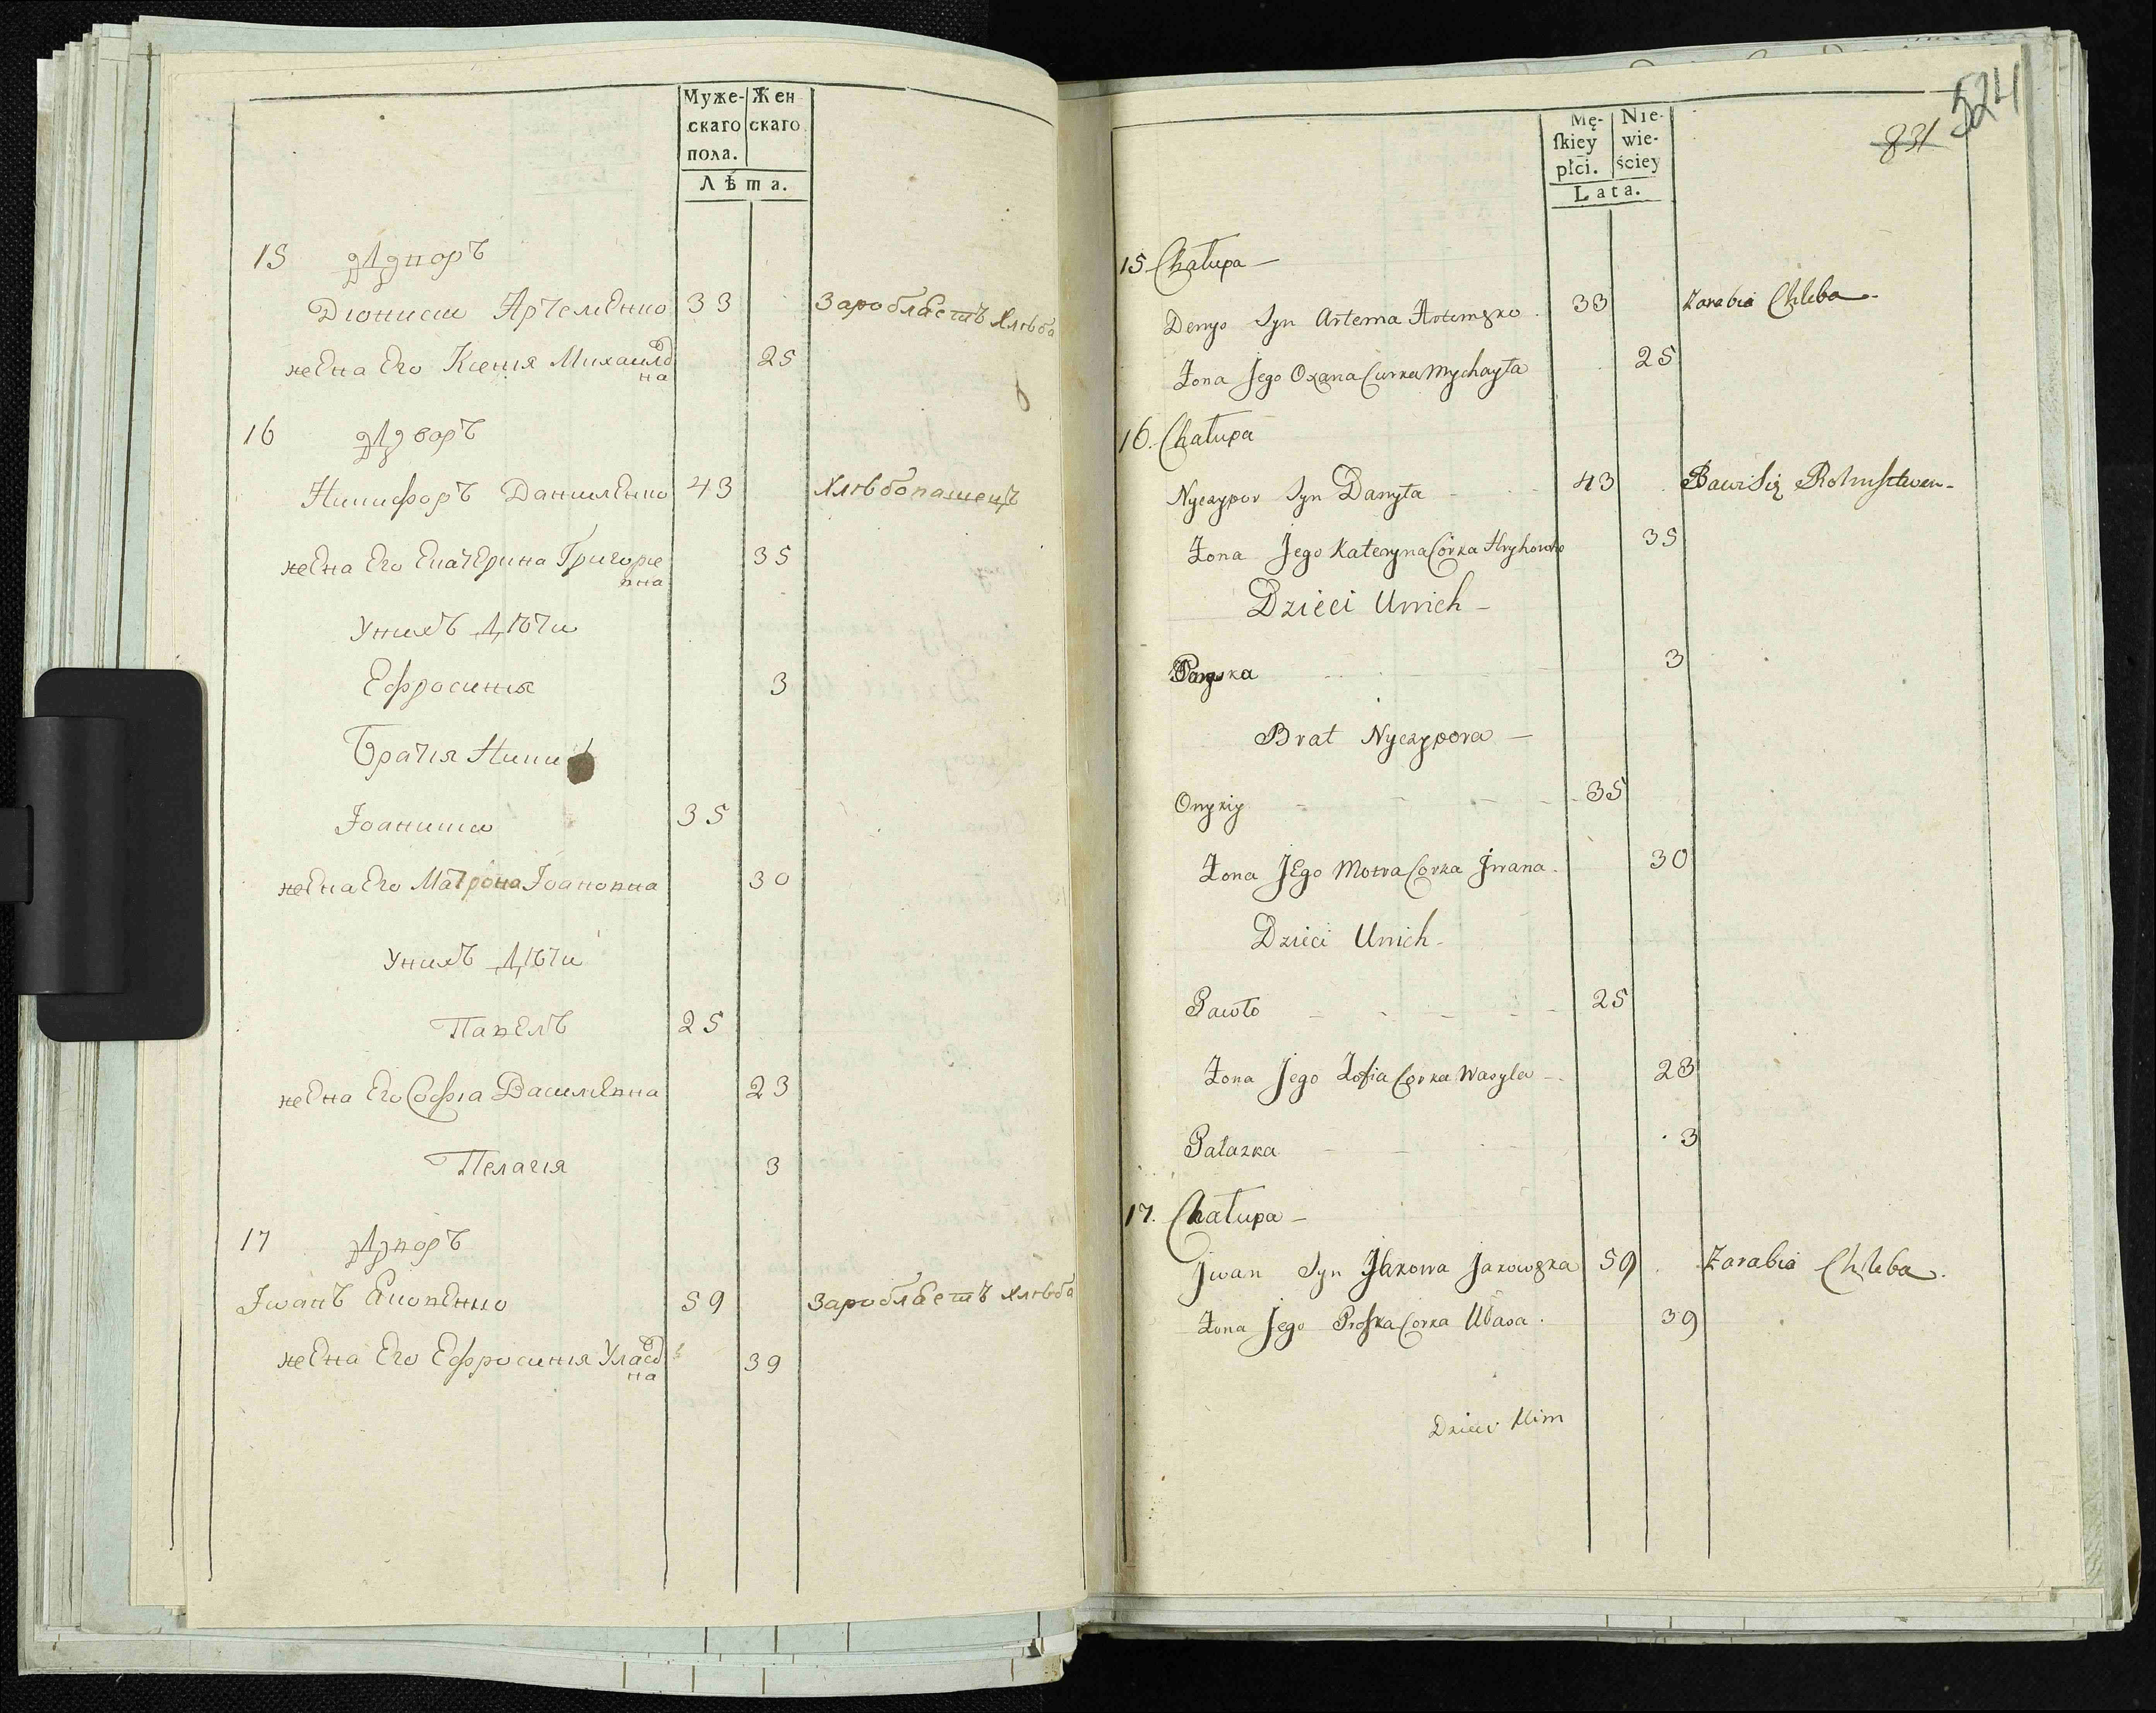 Муже-скаго пола. Жен скаго
Лѣта.
15 Дворъ
Дионисии Артеменко 33 Заробляетъ хлѣба
жена Его Ксения Михаилов
на 25
16 Дворъ
Никифоръ Даниленко 43 Хлѣбопашецъ
жена Его Екатерина Григорие
вна 35
Унихъ Дѣти
Ефросиния 3
Братия Ники
Іоаникии 35
жена Его Матрона Іоановна 30
Унихъ Дѣти
Павелъ 25
жена Его Софиа Василевна 23
Пелагия 3
17 Дворъ
Іоанъ Яковенко 59 Заробляетъ хлѣба
жена Его Ефросиния Уласов
на 39
524
831
Mę-ſkiey płci. Nie-wie-ściey
Lata.
15 Chałupa –
Denys Syn Artema Artemęko 33 Zarabia Chleba –
Żona Jego Oxana Curka Mychayła 25
16. Chałupa
Nyczypor Syn Danyła 43 Bawi Się Rolnistwem –
Żona Jego Kateryna Córka Hryhorcho 35
Dzieci Unich –
Paraska 3
Brat Nyczypora –
Onykiy 35
Żona JEgo Motra Corka Jwana. 30
Dzieci Unich –
Pawło 25
Żona Jego Zofia Corka Wasyla – 23
Pałazka 3
17. Chałupa –
Jwan Syn Jakowa Jakowęka 59 Zarabia Chleba.
Żona Jego Proſka Corka Ułasa. 39
Dzieci Uim